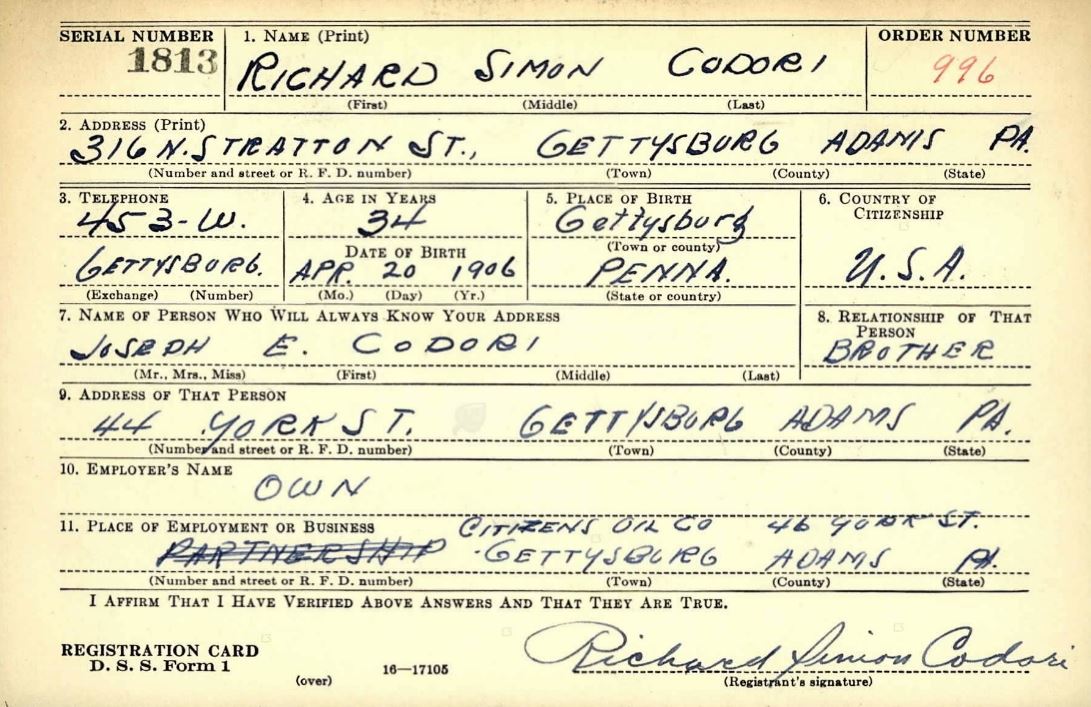 SERIAL NUMBER 1. NAME (Print) ORDER NUMBER
1813 RICHARD SIMON CODORI 996
(First) (Middle) (Last)
2. ADDRESS (Print)
316 N. STRATTON ST., GETTYSBURG ADAMS PA.
(Number and street or R. F. D. number) (Town) (County) (State)
3. TELEPHONE 4. AGE IN YEARS 5. PLACE OF BIRTH 6. COUNTRY OF
CITIZENSHIP
453-W. 34 Gettysburg
DATE OF BIRTH (Town or county)
GETTYSBURG. APR. 20 1906 PENNA. U.S.A.
(Exchange) (Number) (Mo.) (Day) (Yr.) (State or country)
7. NAME OF PERSON WHO WILL ALWAYS KNOW YOUR ADDRESS 8. RELATIONSHIP OF THAT
PERSON
JOSEPH E. CODORI BROTHER
(Mr., Mrs., Miss) (First) (Middle) (Last)
9. ADDRESS OF THAT PERSON
44 YORK ST. GETTYSBURG ADAMS PA.
(Number and street or R. F. D. number) (Town) (County) (State)
10. EMPLOYER'S NAME
OWN
11. PLACE OF EMPLOYMENT OR BUSINESS CITIZENS OIL CO 46 YORK ST.
PARTNERSHIP GETTYSBURG ADAMS PA.
(Number and street or R. F. D. number) (Town) (County) (State)
I AFFIRM THAT I HAVE VERIFIED ABOVE ANSWERS AND THAT THEY ARE TRUE.
REGISTRATION CARD
D. S. S. Form 1 16—17105 Richard Simon Codori
(over) (Registrant's signature)